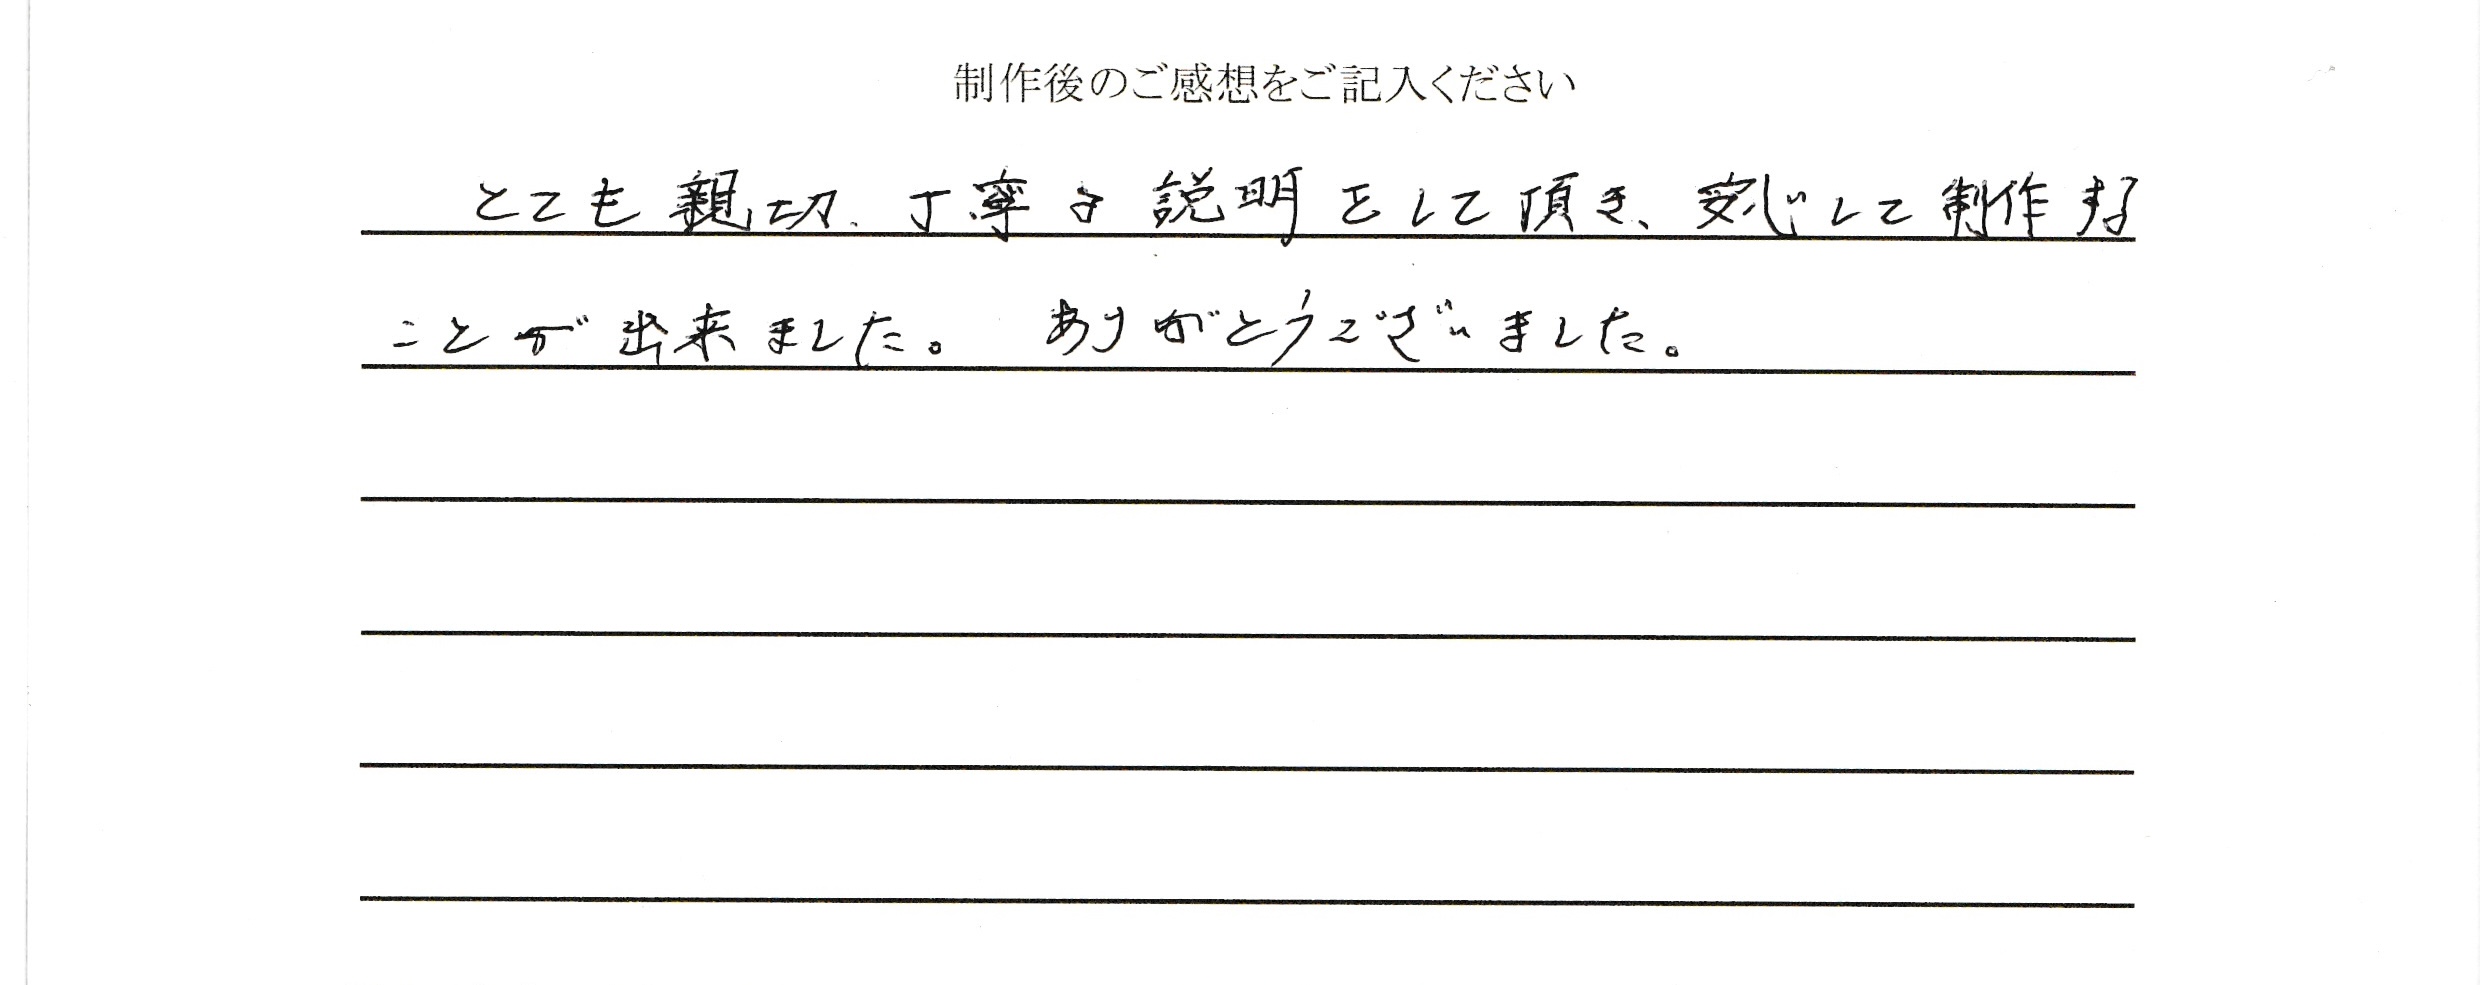 制作後のご感想をご記入ください
とても親切、丁寧な説明をして頂き、安心して制作する
ことが出来ました。 ありがとうございました。